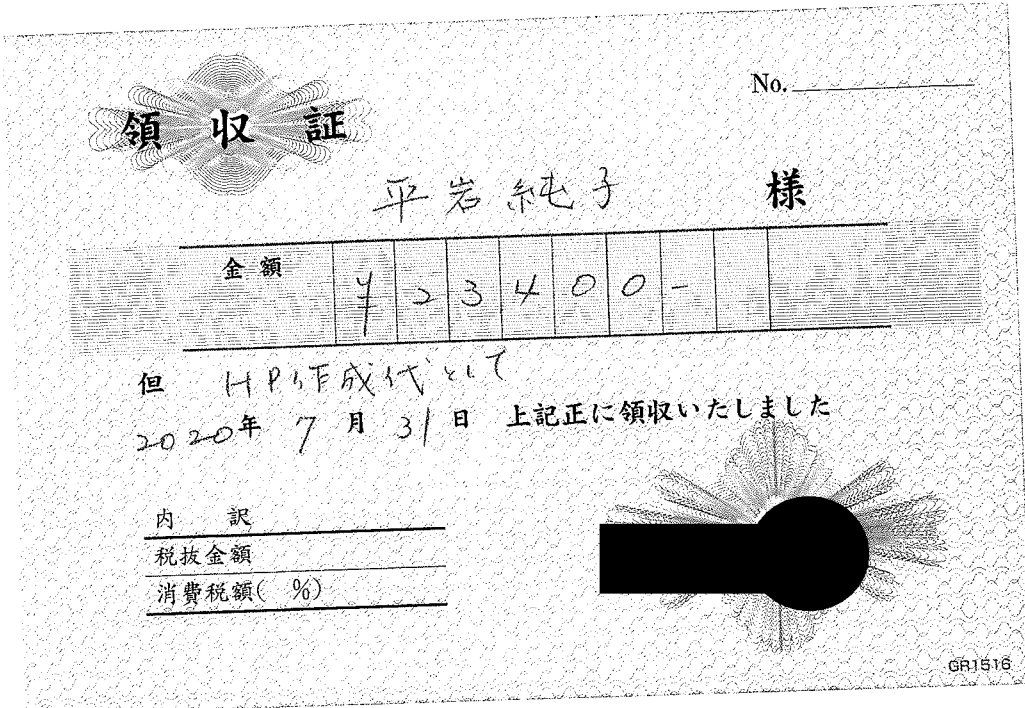 No.
領収証
平岩純子 様
金額 ¥23400-
但 HP作成代として
2020年 7月 31日 上記正に領収いたしました
内 訳
税抜金額
消費税額( %)
GR1516